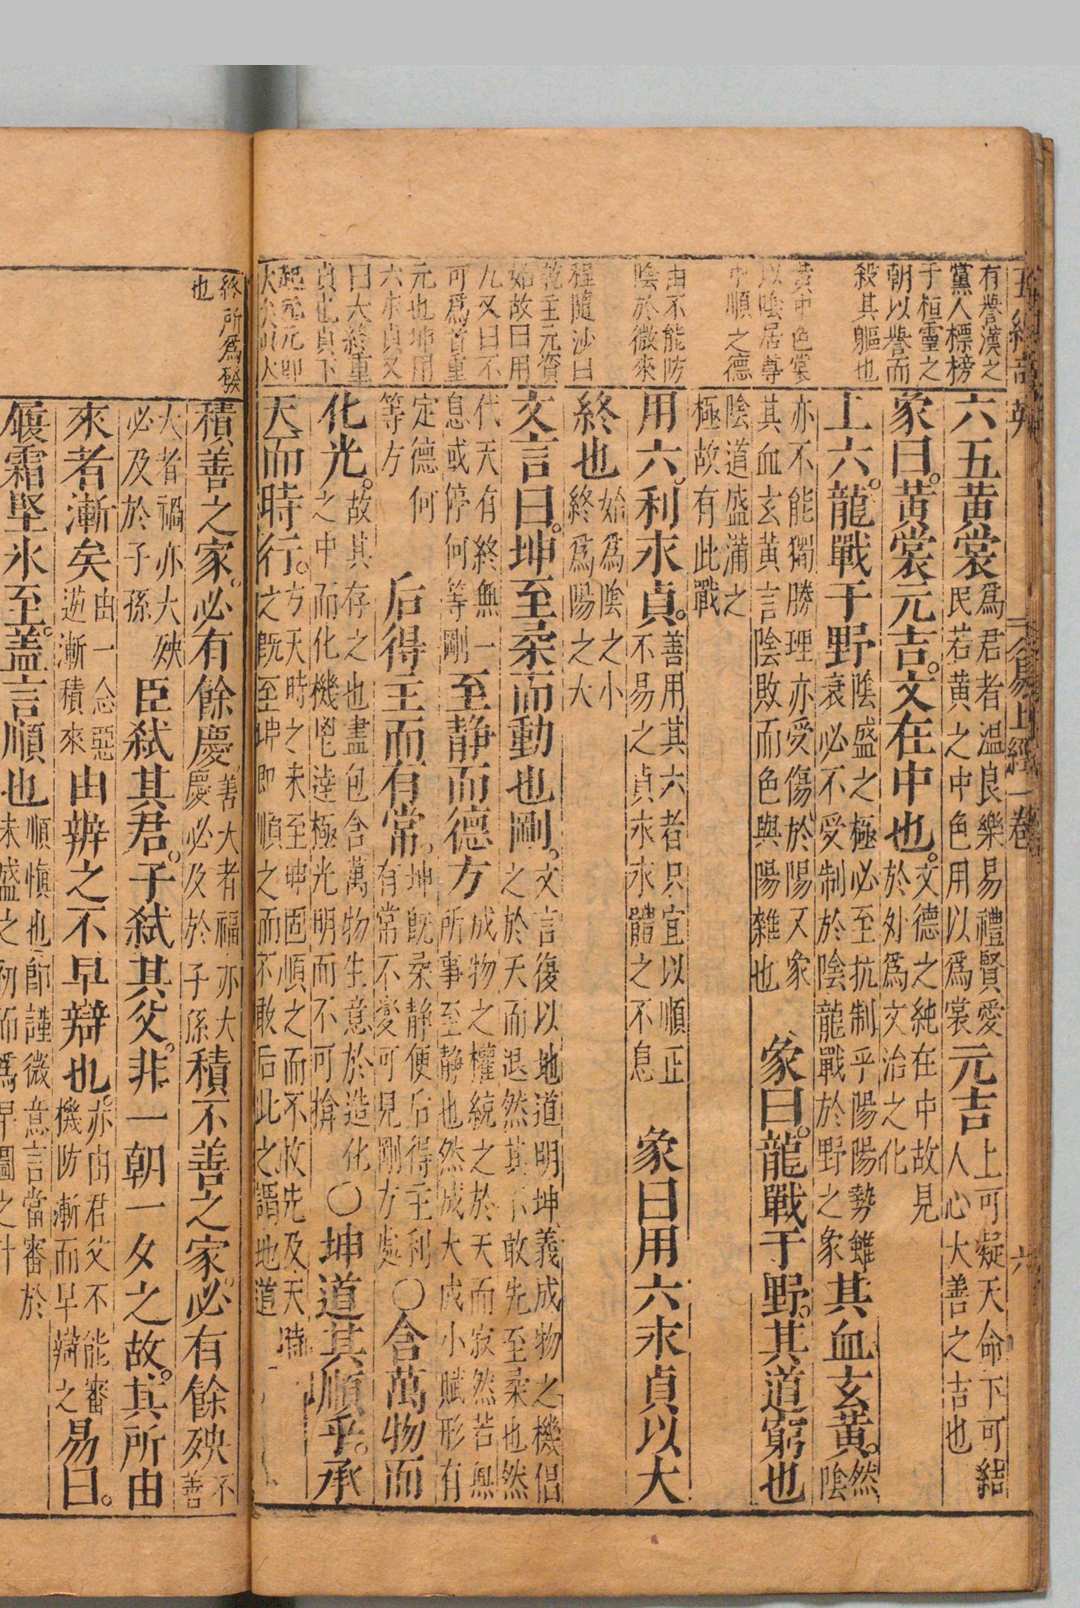 六五黃裳爲君者溫良樂易禮賢愛民若黃之中色用以爲裳元吉上可凝天命下可結人心大善之吉也
象曰黃裳元吉文在中也文德之純在中故見於外爲文治之化
上六龍戰于野陰盛之極必至抗制乎陽陽勢雖衰必不受制於陰龍戰於野之象其血玄黃然陰
亦不能獨勝理亦受傷於陽又象其血玄黃言陰敗而色與陽雜也象曰龍戰于野其道窮也
陰道盛滿之極故有此戰
用六利永貞善用其六者只宜以順正不易之貞永永體之不息象曰用六永貞以大
終也始爲陰之小終爲陽之大
文言曰坤至柔而動也剛文言復以地道明坤義成物之機侶之於天而退然其不敢先至柔也然
代天有終無一息或停何等剛至靜而德方成物之權統之於天而寂然若無所事至靜也然成大成小賦形有
定德何等方后得主而有常坤既柔靜便后得主利有常不變可見剛方處〇含萬物而
化光故其存之也盡包含萬物生意於造化之中而化機鬯達極光明而不可揜〇坤道其順乎承
天而時行方天時之未至坤固順之而不敢先及天時之既至坤即順之而不敢后此之謂地道
有譽漢之
黨人標榜
于桓靈之
朝以譽而
殺其軀也
黃中色裳
以陰居尊
中順之德
由不能防
陰於微來
程隨沙曰
乾主元資
始故曰用
九又曰不
可爲首重
元也坤用
六永貞又
曰大終重
貞也貞下
起元元即
五經
易上經一卷
六
積善之家必有餘慶善大者福亦大慶必及於子孫積不善之家必有餘殃不善
大者禍亦大殃必及於子孫臣弒其君子弒其父非一朝一夕之故其所由
來者漸矣由一念惡迤漸積來由辨之不早辯也亦由君父不能審機防漸而早辯之易曰
履霜堅氷至蓋言順也順慎也即謹微意言當審於未盛之初而爲早圖之計
終所爲發
也